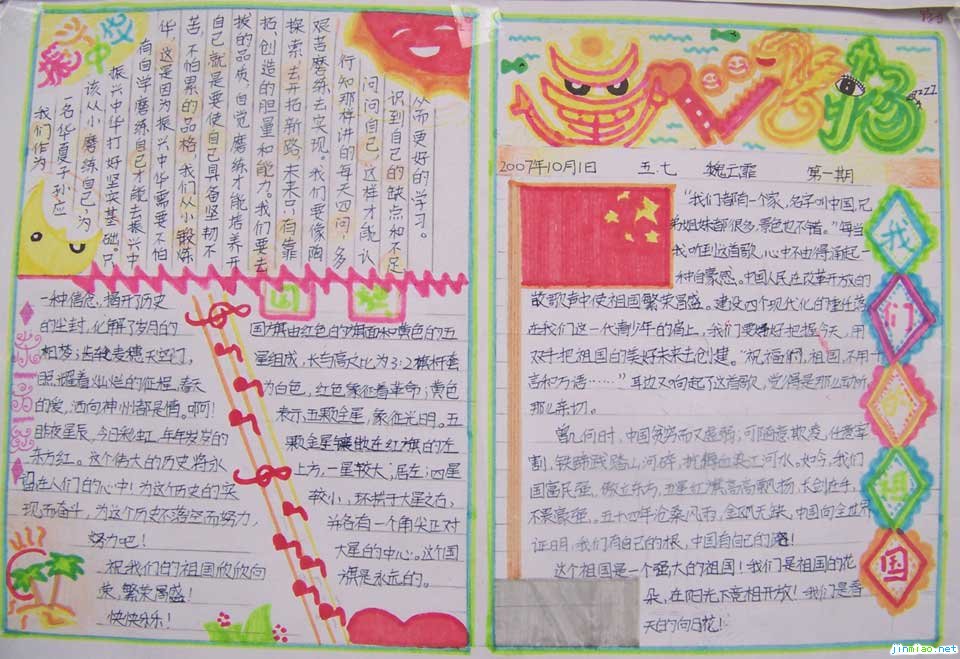 振兴中华
我们作为
名华夏子孙应
该从小磨练自己,为
振兴中华打好坚实基础。只
有自学磨练自己才能去振兴中
华,这是因为振兴中华需要不怕
苦,不怕累的品格,我们从小锻炼
自己就是要使自己具备坚韧不
拔的品质,自觉磨练才能培养开
拓、创造的胆量和能力。我们要去
探索,去开拓新路,未来只有靠
艰苦磨练去实现。我们要像陶
行知那样讲的每天四问,多
问问自己,这样才能认
识到自己的缺点和不足
从而更好的学习。
一种信念,揭开历史
的尘封,化解了岁月的
天这门,
照耀着灿烂的征程,春天
的爱,洒向神州都是情。啊!
昨夜星辰,今日彩虹,年年发发的
东方红。这个伟大的历史将永
留在人们的心中!为这个历史的实
现而奋斗,为这个历史不落空而努力,
努力吧!
祝我们的祖国欣欣向
荣,繁荣昌盛!
快快乐乐!
国旗
国旗由红色的旗面和黄色的五
星组成,长与高之比为3:2旗杆套
为白色,红色象征着革命;黄色
表示,五颗金星,象征光明。五
颗金星镶在红旗的左
上方,一星较大,居左;四星
较小,环拱于大星之右,
并各有一个角尖正对
大星的中心。这个国
旗是永远的。
2007年10月1日 五.七 魏云霏 第一期
"我们都有一个家,名字叫中国,兄
弟姐妹都很多,景色也不错。"每当
我听到这首歌,心中不由得涌起一
种自豪感。中国人民在改革开放的
歌声中使祖国繁荣昌盛。建设四个现代化的重任落
在我们这一代青少年的肩上,我们要好好把握今天,用
双手把祖国的美好未来去创建。"祝福你,祖国,不用千
言和万语……"耳边又响起了这首歌,觉得是那么动听
那么亲切。
曾几何时,中国贫穷而又虚弱;可随意欺凌,任意宰
割,铁蹄践踏山河碎,江河水。如今,我们
国富民强,傲立东方,五星红旗高高飘扬,长剑在手,
不畏豪强。五十四年沧桑风雨,金瓯无缺,中国向全世界
证明,我们有自己的根,中国有自己的魂!
这个祖国是一个强大的祖国!我们是祖国的花
朵,在阳光下竞相开放!我们是春
天的向日葵!
我们的祖国
jinmiao.net